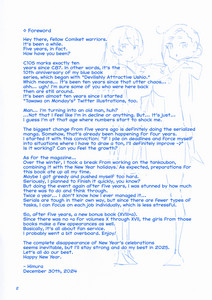 ○ Foreword
Hey there, fellow Comiket warriors.
It's been a while.
Five years, in fact.
How have you been?
C105 marks exactly ten
years since C87. In other words, it's the
10th anniversary of my blue book
series, which began with "Devilishly Attractive Ushio."
Which means... It's been ten years since that other chaos...
ahh... ugh! I'm sure some of you who were here back
then are still around.
It's been almost ten years since I started
"Tawawa on Monday"'s Twitter illustrations, too.
Man... I'm turning into an old man, huh?
...Not that I feel like I'm in decline or anything. But... It's just...
I guess I'm at that age where numbers start to shock me.
The biggest change from five years ago is definitely doing the serialized
manga. Somehow, that's already been happening for four years.
I started it with this conviction: "If I pile on deadlines and force myself
into situations where I have to draw a ton, I'll definitely improve -j"
Is it working? Can you feel the growth?
As for the magazine,
Over the winter, I took a break from working on the tankoubon,
combining it with the New Year holidays. As expected, preparations for
this book ate up all my time.
Maybe I got greedy and pushed myself too hard.
Seriously, I planned to finish it quickly, you know?
But doing the event again after five years, I was stunned by how much
there was to do and think through.
Twice a year... I don't know how I ever managed it.
Serials are tough in their own way, but since there are fewer types of
tasks, I can focus on each job individually, which is less stressful.
So, after five years, a new bonus book (XVIII).
Since there was no +α for volumes X through XVII, the girls from those
books make a few appearances as well.
Basically, it's all about fan service.
I probably went a bit overboard. Enjoy!
The complete disappearance of New Year's celebrations
seems inevitable, but I'll stay strong and do my best in 2025.
Let's all do our best.
Happy New Year.
- Himura
December 30th, 2024